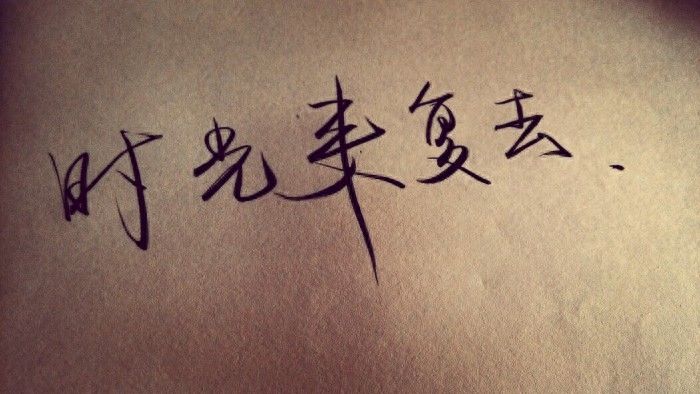 时光来复去.